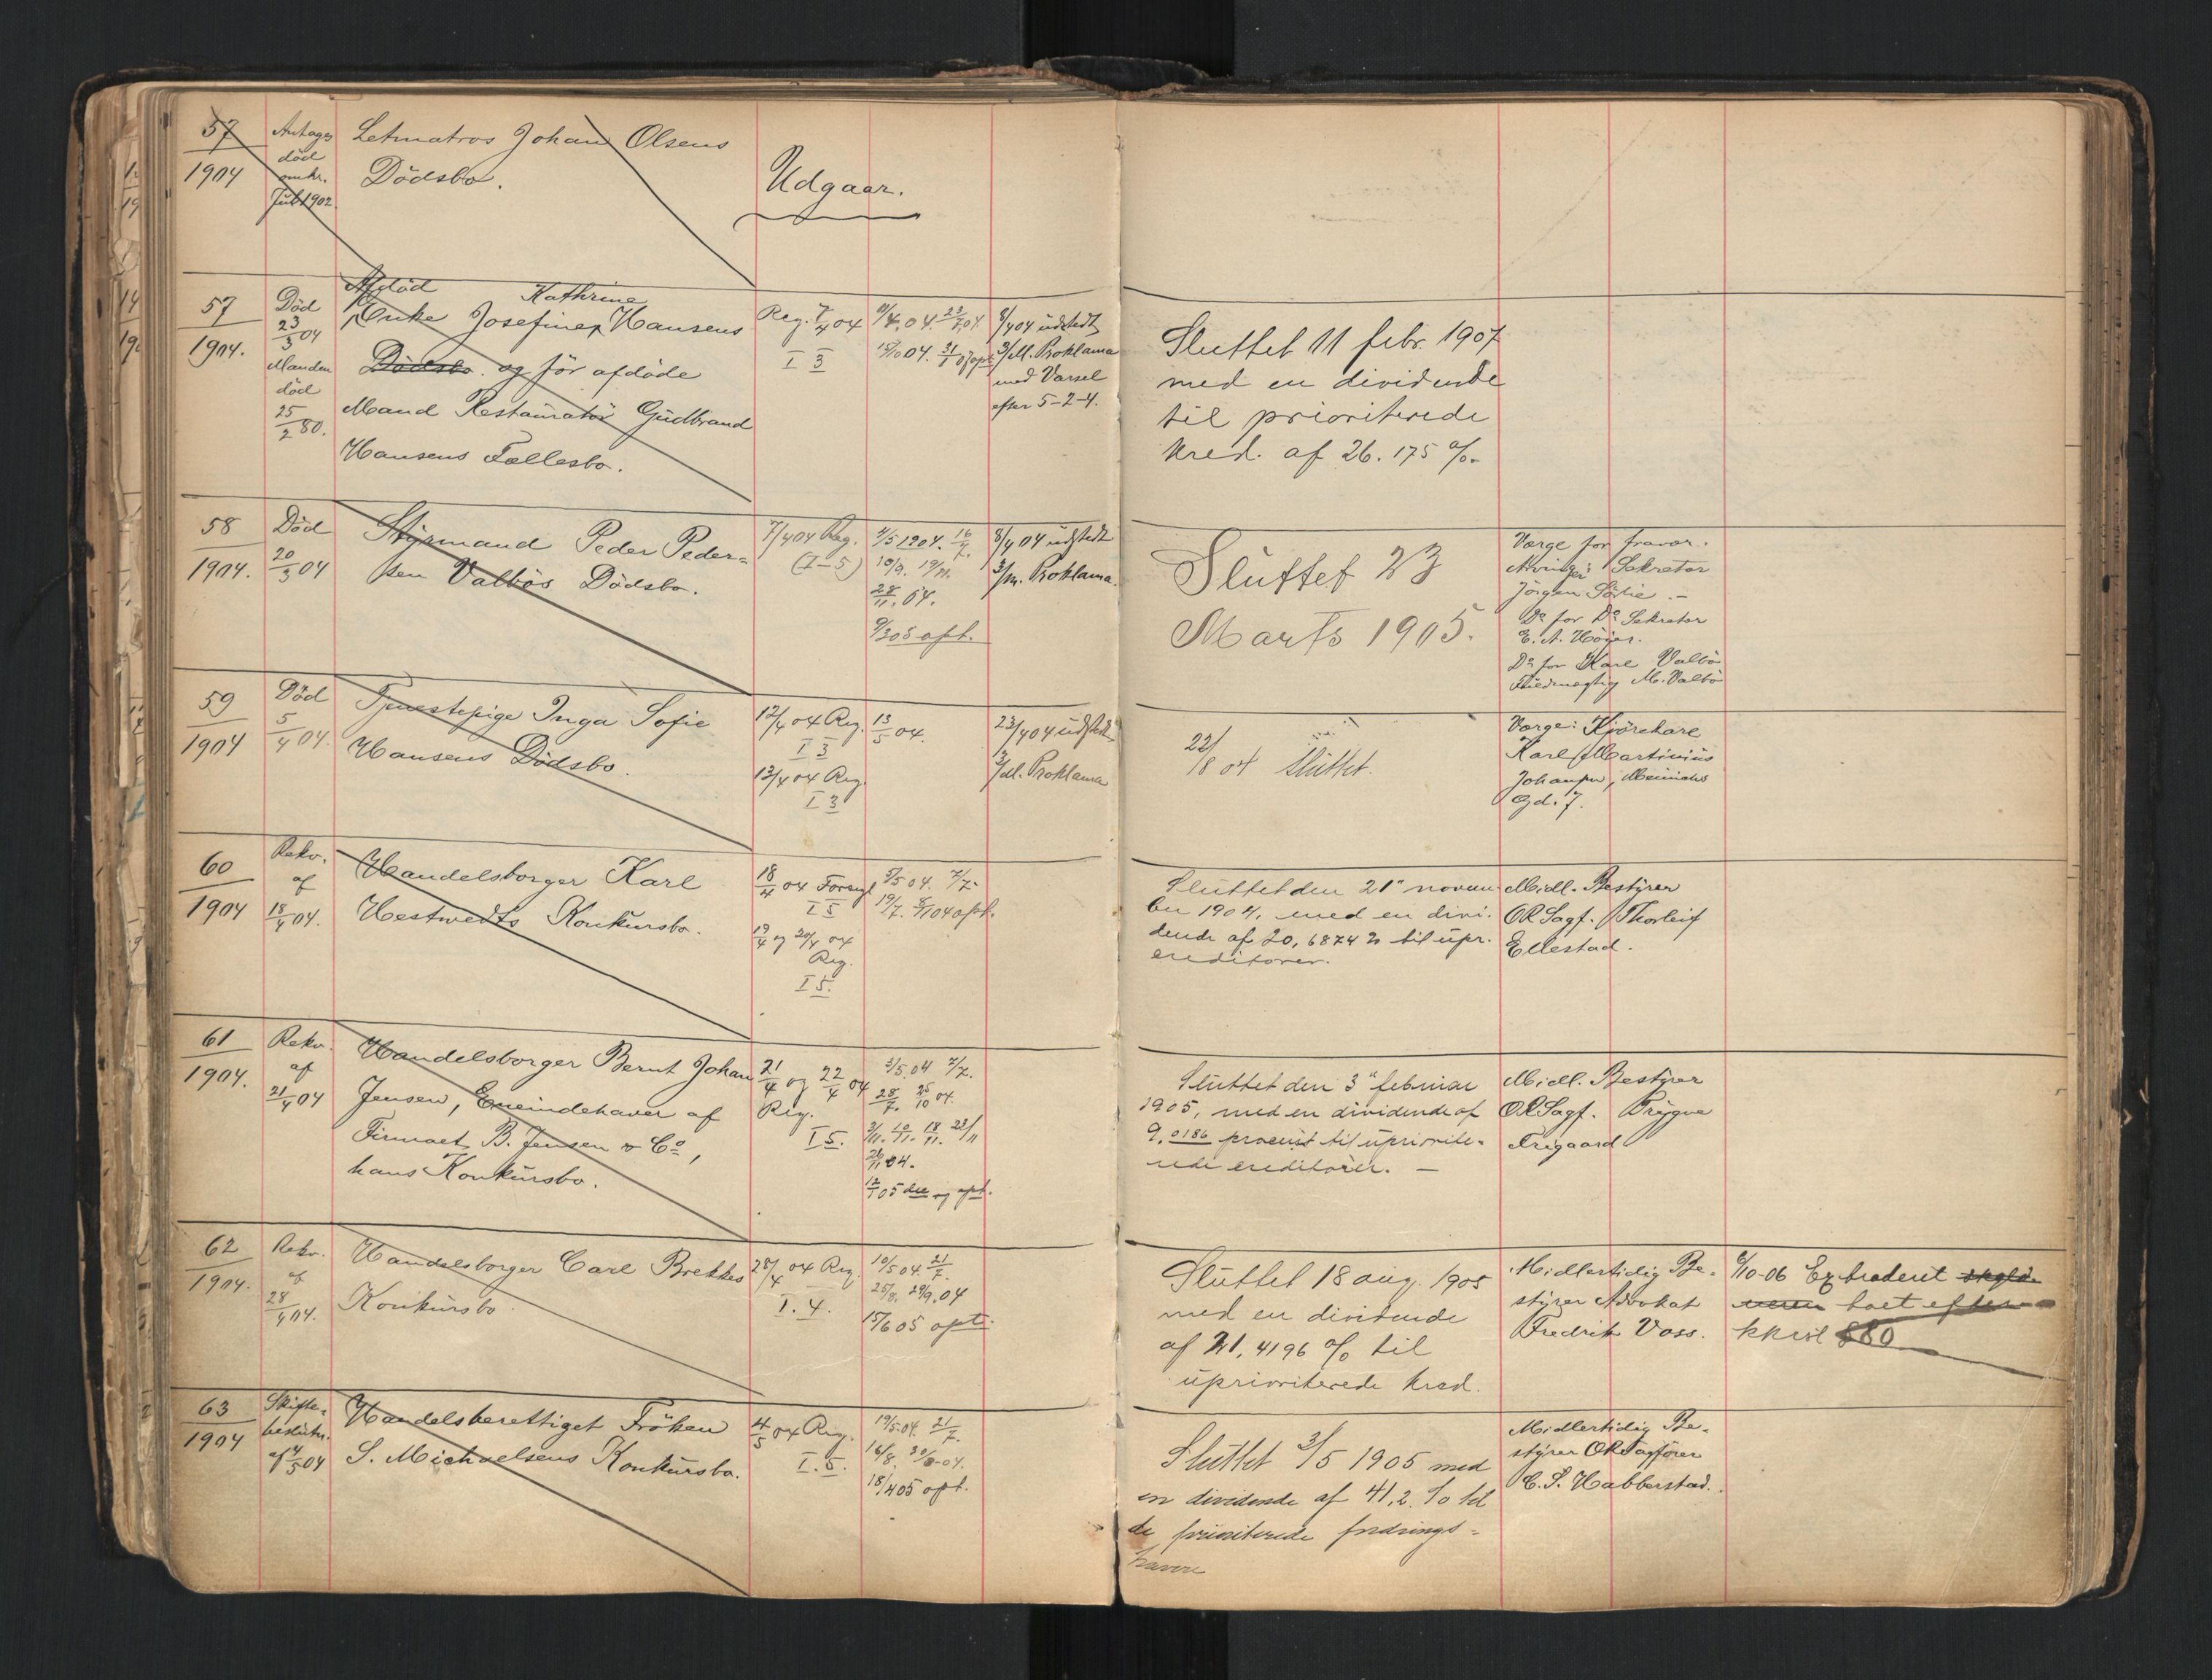 57
1904
Antages
död
omkr.
Juli 1902.
Letmatros Johan Olsens
Dödsbo.
Udgaar.
57
1904.
Död
23/3 04
Manden
död
25/2 80.
Afdöd Kathrine
Enke Josefine Hansens
Dödsbo og för afdöde
Mand Restauratör Gudbrand
Hansens Fællesbo.
Reg. 7/4 04
I 3
8/4 04 udstedt
3/M. Proklama
med Varsel
efter 5-2-4.
Sluttet 11 febr. 1907
med en dividende
til prioriterede
kred. af 26.175 %.
58
1904.
Död
20/3 04
Styrmand Peder Peder-
sen Valbös Dödsbo.
7/4 04 Reg.
(I-5)
3/5 1904. 16/7.
28/11. 04.
9/3 05 opt.
8/4 04 udstedt
3/m. Proklama.
Sluttet 23
Marts 1905.
Værge for fravær.
Sekretær
Jörgen
Do for Do Sekretær
E. A. Höyer.
Do for Karl Valbö
Fuldmægtig M. Valbö
59
1904
Död
5/4 04.
Tjenestepige Inga Sofie
Hansens Dödsbo.
12/4 04 Reg.
I 3
13/4 04 Reg.
I 3
13/5 04.
23/4 04 udstedt
3/M. Proklama
22/8 04 Sluttet.
Værge: Kjörekarl
Karl Martinius
Johansen,
Gd. 7.
60
1904
Rekv.
af
18/4 04.
Handelsborger Karl
Hestwedts Konkursbo.
18/4 04 Forsegl.
I 5
19/4 og 20/4 04
Reg.
I 5.
5/5 04. 7/7.
19/7. 8/11 04 opt.
Sluttet den 21' novem
ber 1904, med en divi-
dende af 20,6874 % til upr.
creditorer.
Midl. Bestyrer
OR Sagf. Thorleif
Ellestad.
61
1904.
Rekv.
af
21/4 04
Handelsborger Bernt Johan
Jensen, Eneindehaver af
Firmaet B. Jensen & Co,
hans Konkursbo.
21/4 og 22/4 04
Reg.
I 5.
3/5. 04 7/7.
28/7. 25/10 04.
26/11 04.
12/1 05 opt.
Sluttet den 3' februar
1905, med en dividende af
9,0186 procent til upriorite-
rede creditorer. —
Midl. Bestyrer
OR Sagf. Trygve
Frigaard
62
1904.
Rekv.
af
28/4 04.
Handelsborger Carl Brekkes
Konkursbo.
28/4 04 Reg.
I. 4.
10/5 04. 21/7.
25/8. 29/9. 04
15/6 05 opt.
Sluttet 18 aug. 1905
med en dividende
af 21,4196 % til
uprioriterede kred.
Midlertidig Be-
styrer Advokat
Fredrik Voss.
6/10-06 Extraderet
boet efter
880
63
1904
Skifte-
beslutn.
af 4/5 04
Handelsberettiget Fröken
S. Michaelsens Konkursbo.
4/5 04 Reg.
I. 5.
19/5. 04. 21/7.
16/8. 30/8-04.
18/4 05 opt.
Sluttet 3/5 1905 med
en dividende af 41,2 % til
de prioriterede fordrings-
havere
Midlertidig Be-
styrer OR Sagförer
C. S. Habberstad.